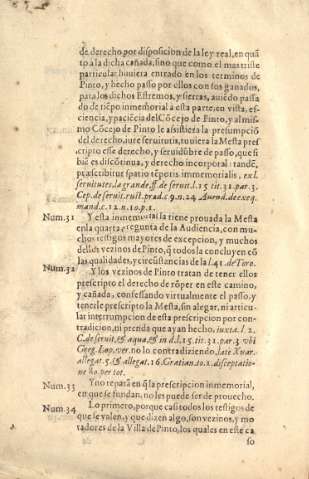 de derecho por disposicion de la ley real, en quã
to a la dicha cañada, sino que como el mas triste
particular huuiera entrado en los terminos de
Pinto, y hecho passo por ellos con sus ganados,
para los dichos Estremos, y sierras, auiẽdo passa
do de tiẽpo inmemorial a esta parte, en vista, es-
ciencia, y paciẽcia del Cõcejo de Pinto, y al mis-
mo Cõcejo de Pinto le assistiera la presumpciõ
del derecho, iure seruitutis, tuuiera la Mesta pres
cripto este derecho, y seruidũbre de passo, que si
biẽ es discõtinua, y derecho incorporal: tandẽ,
præscribitur spatio tẽporis immemorialis. ex l.
seruitutes, la grande, ff. de seruit. l. 15. tit. 31. par. 3.
Cep. de seruit. rust. præd. c. 9. n. 24. Auend. de exeq.
mand. c. 12. n. 10. p. 1.
Num. 31 Y esta inmemorial la tiene prouada la Mesta
en la quarta pregunta de la Audiencia, con mu-
chos testigos mayores de excepcion, y muchos
dellos vezinos de Pinto, q̃ todos la concluyen cõ
las qualidades, y circũstancias de la l. 41. de Toro.
Num. 32 Y los vezinos de Pinto tratan de tener ellos
prescripto el derecho de rõper en este camino,
y cañada, confessando virtualmente el passo, y
tenerle prescripto la Mesta, sin alegar, ni articu-
lar interrupcion de esta prescripcion por con-
tradicion, ni prenda que ayan hecho, iuxta l. 2.
C. de seruit. & aqua, & in d. l. 15. tit. 31. par. 3. vbi
Greg. Lop. ver. no lo contradiziendo, late Xuar.
allegat. 5. & allegat. 16. Gratian. 10. 1. disceptatio-
ne 60. per tot.
Num. 33 Y no repara en q̃ la prescripcion inmemorial,
en que se fundan, no les puede ser de prouecho.
Num. 34 Lo primero, porque casi todos los testigos de
que se valen, y que dizen algo, son vezinos, y mo
radores de la Villa de Pinto, los quales en este ca
so